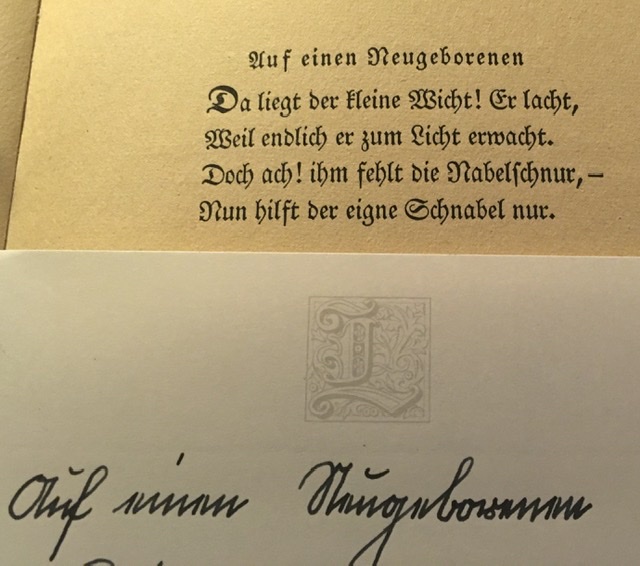 Auf einen Neugeborenen
Da liegt der kleine Wicht! Er lacht,
Weil endlich er zum Licht erwacht.
Doch ach! ihm fehlt die Nabelschnur, –
Nun hilft der eigne Schnabel nur.
L
Auf einen Neugeborenen